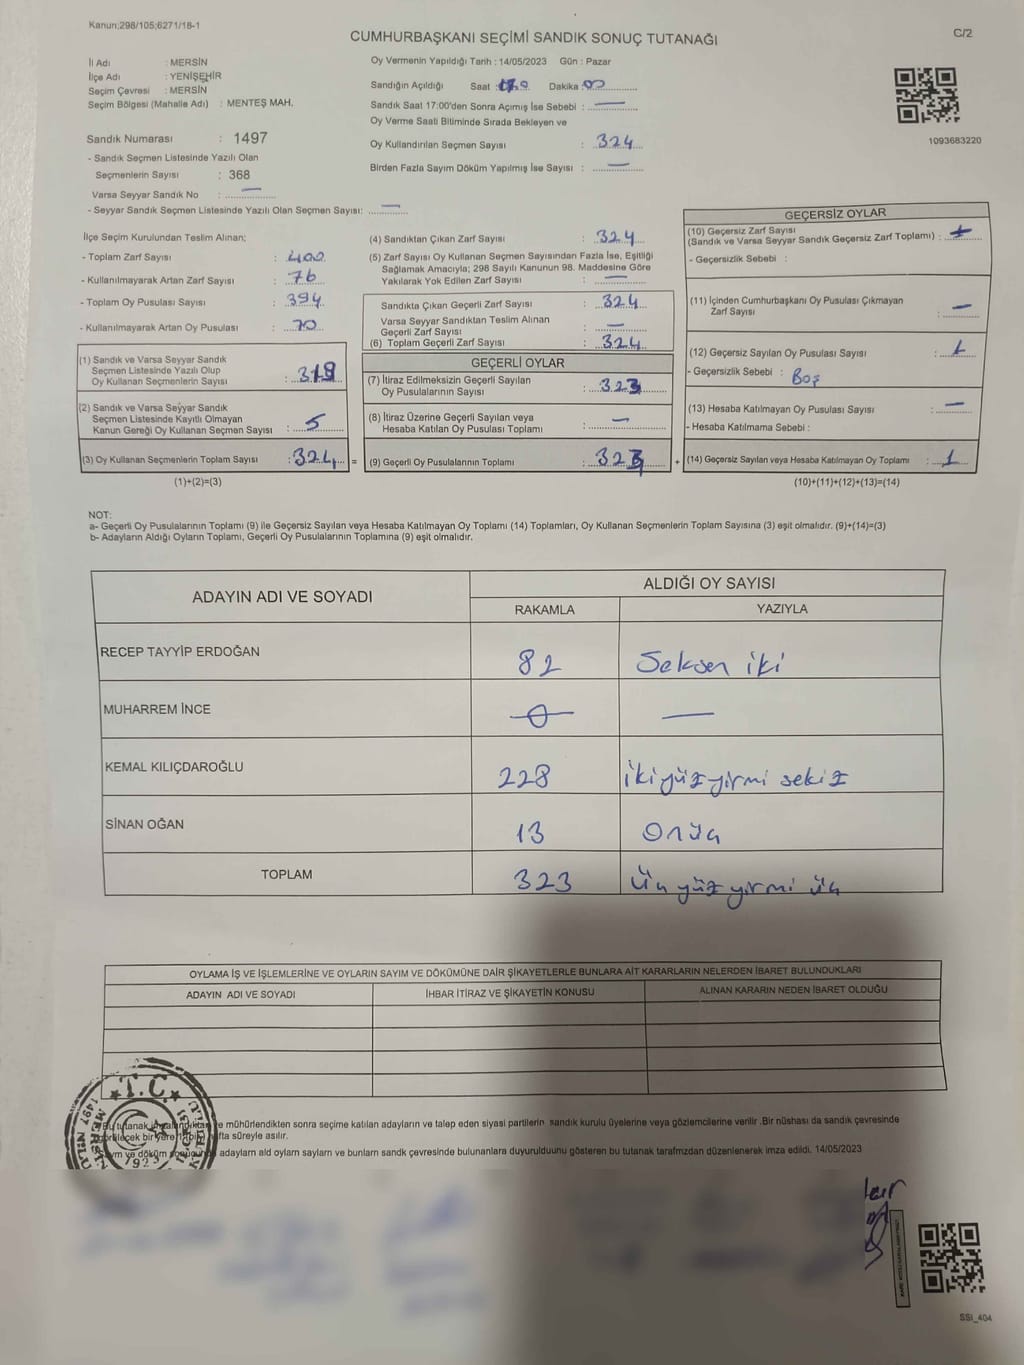 Kanun;298/105;6271/18-1
C/2
CUMHURBAŞKANI SEÇİMİ SANDIK SONUÇ TUTANAĞI
İl Adı : MERSİN
İlçe Adı : YENİŞEHİR
Seçim Çevresi : MERSİN
Seçim Bölgesi (Mahalle Adı) : MENTEŞ MAH.
Oy Vermenin Yapıldığı Tarih : 14/05/2023 Gün : Pazar
Sandığın Açıldığı Saat : Dakika : 00
Sandık Saat 17:00'den Sonra Açımış İse Sebebi : —
Oy Verme Saati Bitiminde Sırada Bekleyen ve
Oy Kullandırılan Seçmen Sayısı : 324
Birden Fazla Sayım Döküm Yapılmış İse Sayısı : —
1093683220
Sandık Numarası : 1497
- Sandık Seçmen Listesinde Yazılı Olan
Seçmenlerin Sayısı : 368
Varsa Seyyar Sandık No : —
- Seyyar Sandık Seçmen Listesinde Yazılı Olan Seçmen Sayısı: —
İlçe Seçim Kurulundan Teslim Alınan;
- Toplam Zarf Sayısı : 400
- Kullanılmayarak Artan Zarf Sayısı : 76
- Toplam Oy Pusulası Sayısı : 394
- Kullanılmayarak Artan Oy Pusulası : 70
(1) Sandık ve Varsa Seyyar Sandık
Seçmen Listesinde Yazılı Olup
Oy Kullanan Seçmenlerin Sayısı : 319
(2) Sandık ve Varsa Seyyar Sandık
Seçmen Listesinde Kayıtlı Olmayan
Kanun Gereği Oy Kullanan Seçmen Sayısı : 5
(3) Oy Kullanan Seçmenlerin Toplam Sayısı : 324 =
(1)+(2)=(3)
(4) Sandıktan Çıkan Zarf Sayısı : 324
(5) Zarf Sayısı Oy Kullanan Seçmen Sayısından Fazla İse, Eşitliği
Sağlamak Amacıyla; 298 Sayılı Kanunun 98. Maddesine Göre
Yakılarak Yok Edilen Zarf Sayısı : —
Sandıkta Çıkan Geçerli Zarf Sayısı : 324
Varsa Seyyar Sandıktan Teslim Alınan
Geçerli Zarf Sayısı : —
(6) Toplam Geçerli Zarf Sayısı : 324
GEÇERLİ OYLAR
(7) İtiraz Edilmeksizin Geçerli Sayılan
Oy Pusulalarının Sayısı : 323
(8) İtiraz Üzerine Geçerli Sayılan veya
Hesaba Katılan Oy Pusulası Toplamı : —
(9) Geçerli Oy Pusulalarının Toplamı : 323 +
GEÇERSİZ OYLAR
(10) Geçersiz Zarf Sayısı
(Sandık ve Varsa Seyyar Sandık Geçersiz Zarf Toplamı) :
- Geçersizlik Sebebi :
(11) İçinden Cumhurbaşkanı Oy Pusulası Çıkmayan
Zarf Sayısı : —
(12) Geçersiz Sayılan Oy Pusulası Sayısı : 1
- Geçersizlik Sebebi : Boş
(13) Hesaba Katılmayan Oy Pusulası Sayısı : —
- Hesaba Katılmama Sebebi :
(14) Geçersiz Sayılan veya Hesaba Katılmayan Oy Toplamı : 1
(10)+(11)+(12)+(13)=(14)
NOT:
a- Geçerli Oy Pusulalarının Toplamı (9) ile Geçersiz Sayılan veya Hesaba Katılmayan Oy Toplamı (14) Toplamları, Oy Kullanan Seçmenlerin Toplam Sayısına (3) eşit olmalıdır. (9)+(14)=(3)
b- Adayların Aldığı Oyların Toplamı, Geçerli Oy Pusulalarının Toplamına (9) eşit olmalıdır.
ADAYIN ADI VE SOYADI
ALDIĞI OY SAYISI
RAKAMLA YAZIYLA
RECEP TAYYİP ERDOĞAN 82 Seksen iki
MUHARREM İNCE 0 —
KEMAL KILIÇDAROĞLU 228 iki yüz yirmi sekiz
SİNAN OĞAN 13 Onüç
TOPLAM 323 Üç yüz yirmi üç
OYLAMA İŞ VE İŞLEMLERİNE VE OYLARIN SAYIM VE DÖKÜMÜNE DAİR ŞİKAYETLERLE BUNLARA AİT KARARLARIN NELERDEN İBARET BULUNDUKLARI
ADAYIN ADI VE SOYADI İHBAR İTİRAZ VE ŞİKAYETİN KONUSU ALINAN KARARIN NEDEN İBARET OLDUĞU
T.C.
1497
1923
Bu tutanak ve mühürlendikten sonra seçime katılan adayların ve talep eden siyasi partilerin sandık kurulu üyelerine veya gözlemcilerine verilir .Bir nüshası da sandık çevresinde
bir yere fta süreyle asılır.
ve döküm adaylarn ald oylarn saylarn ve bunlarn sandk çevresinde bulunanlara duyurulduunu gösteren bu tutanak tarafmzdan düzenlenerek imza edildi. 14/05/2023
SSI_404